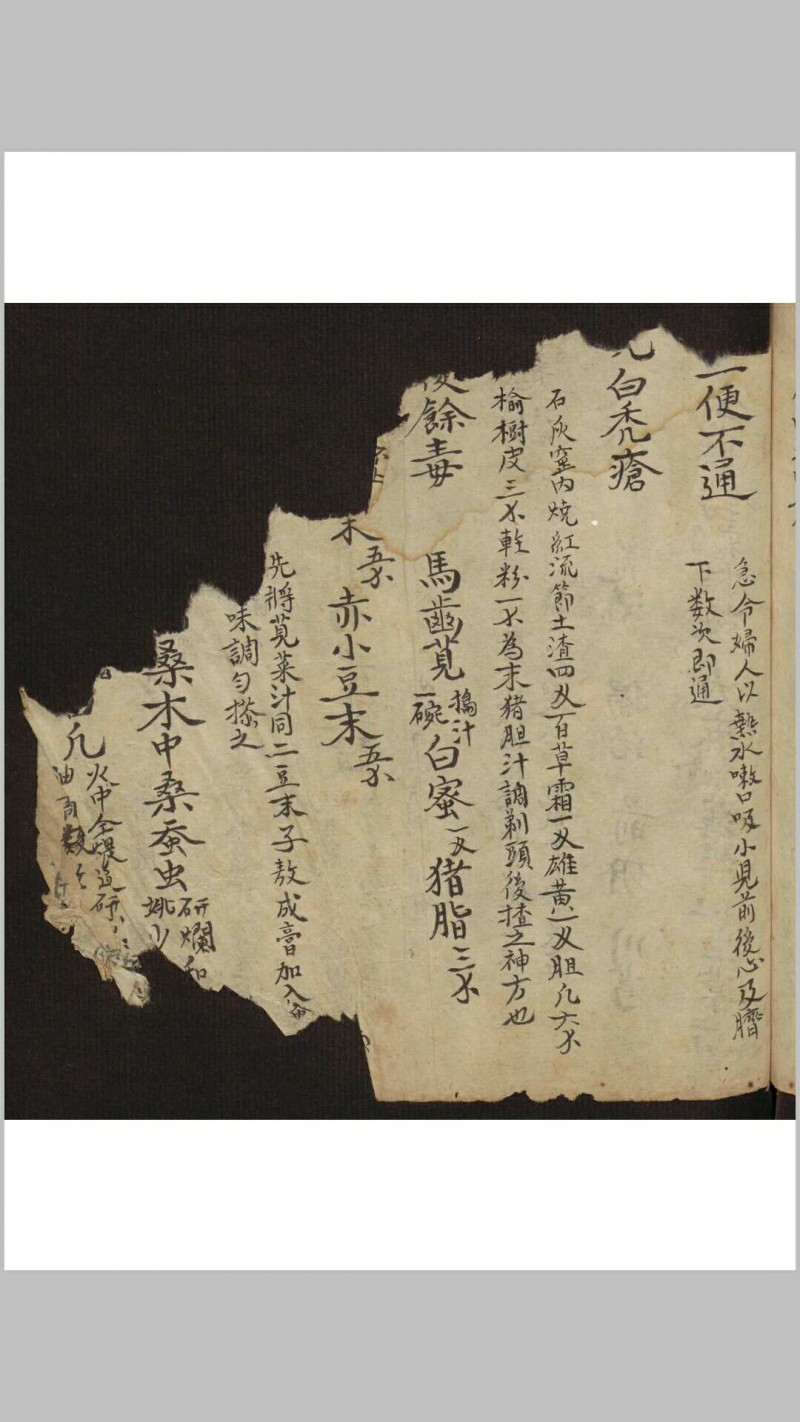 便不通
急令婦人以熱水嗽口吸小児前後心及臍
下数次即通
白秃瘡
石灰窑内烧紅流節土渣四又百草霜一又雄黄一又胆凡六
榆樹皮三 乾粉一 為末猪胆汁調剃頭後搽之神方也
後餘毒
馬齒莧 搗汁
一碗 白蜜一又猪脂三
末 赤小豆末
先將莧菜汁同二豆末子敖成膏加入
味調匀搽之
桑木中桑蚕虫 研爛和
凡 火中 煆過研
油